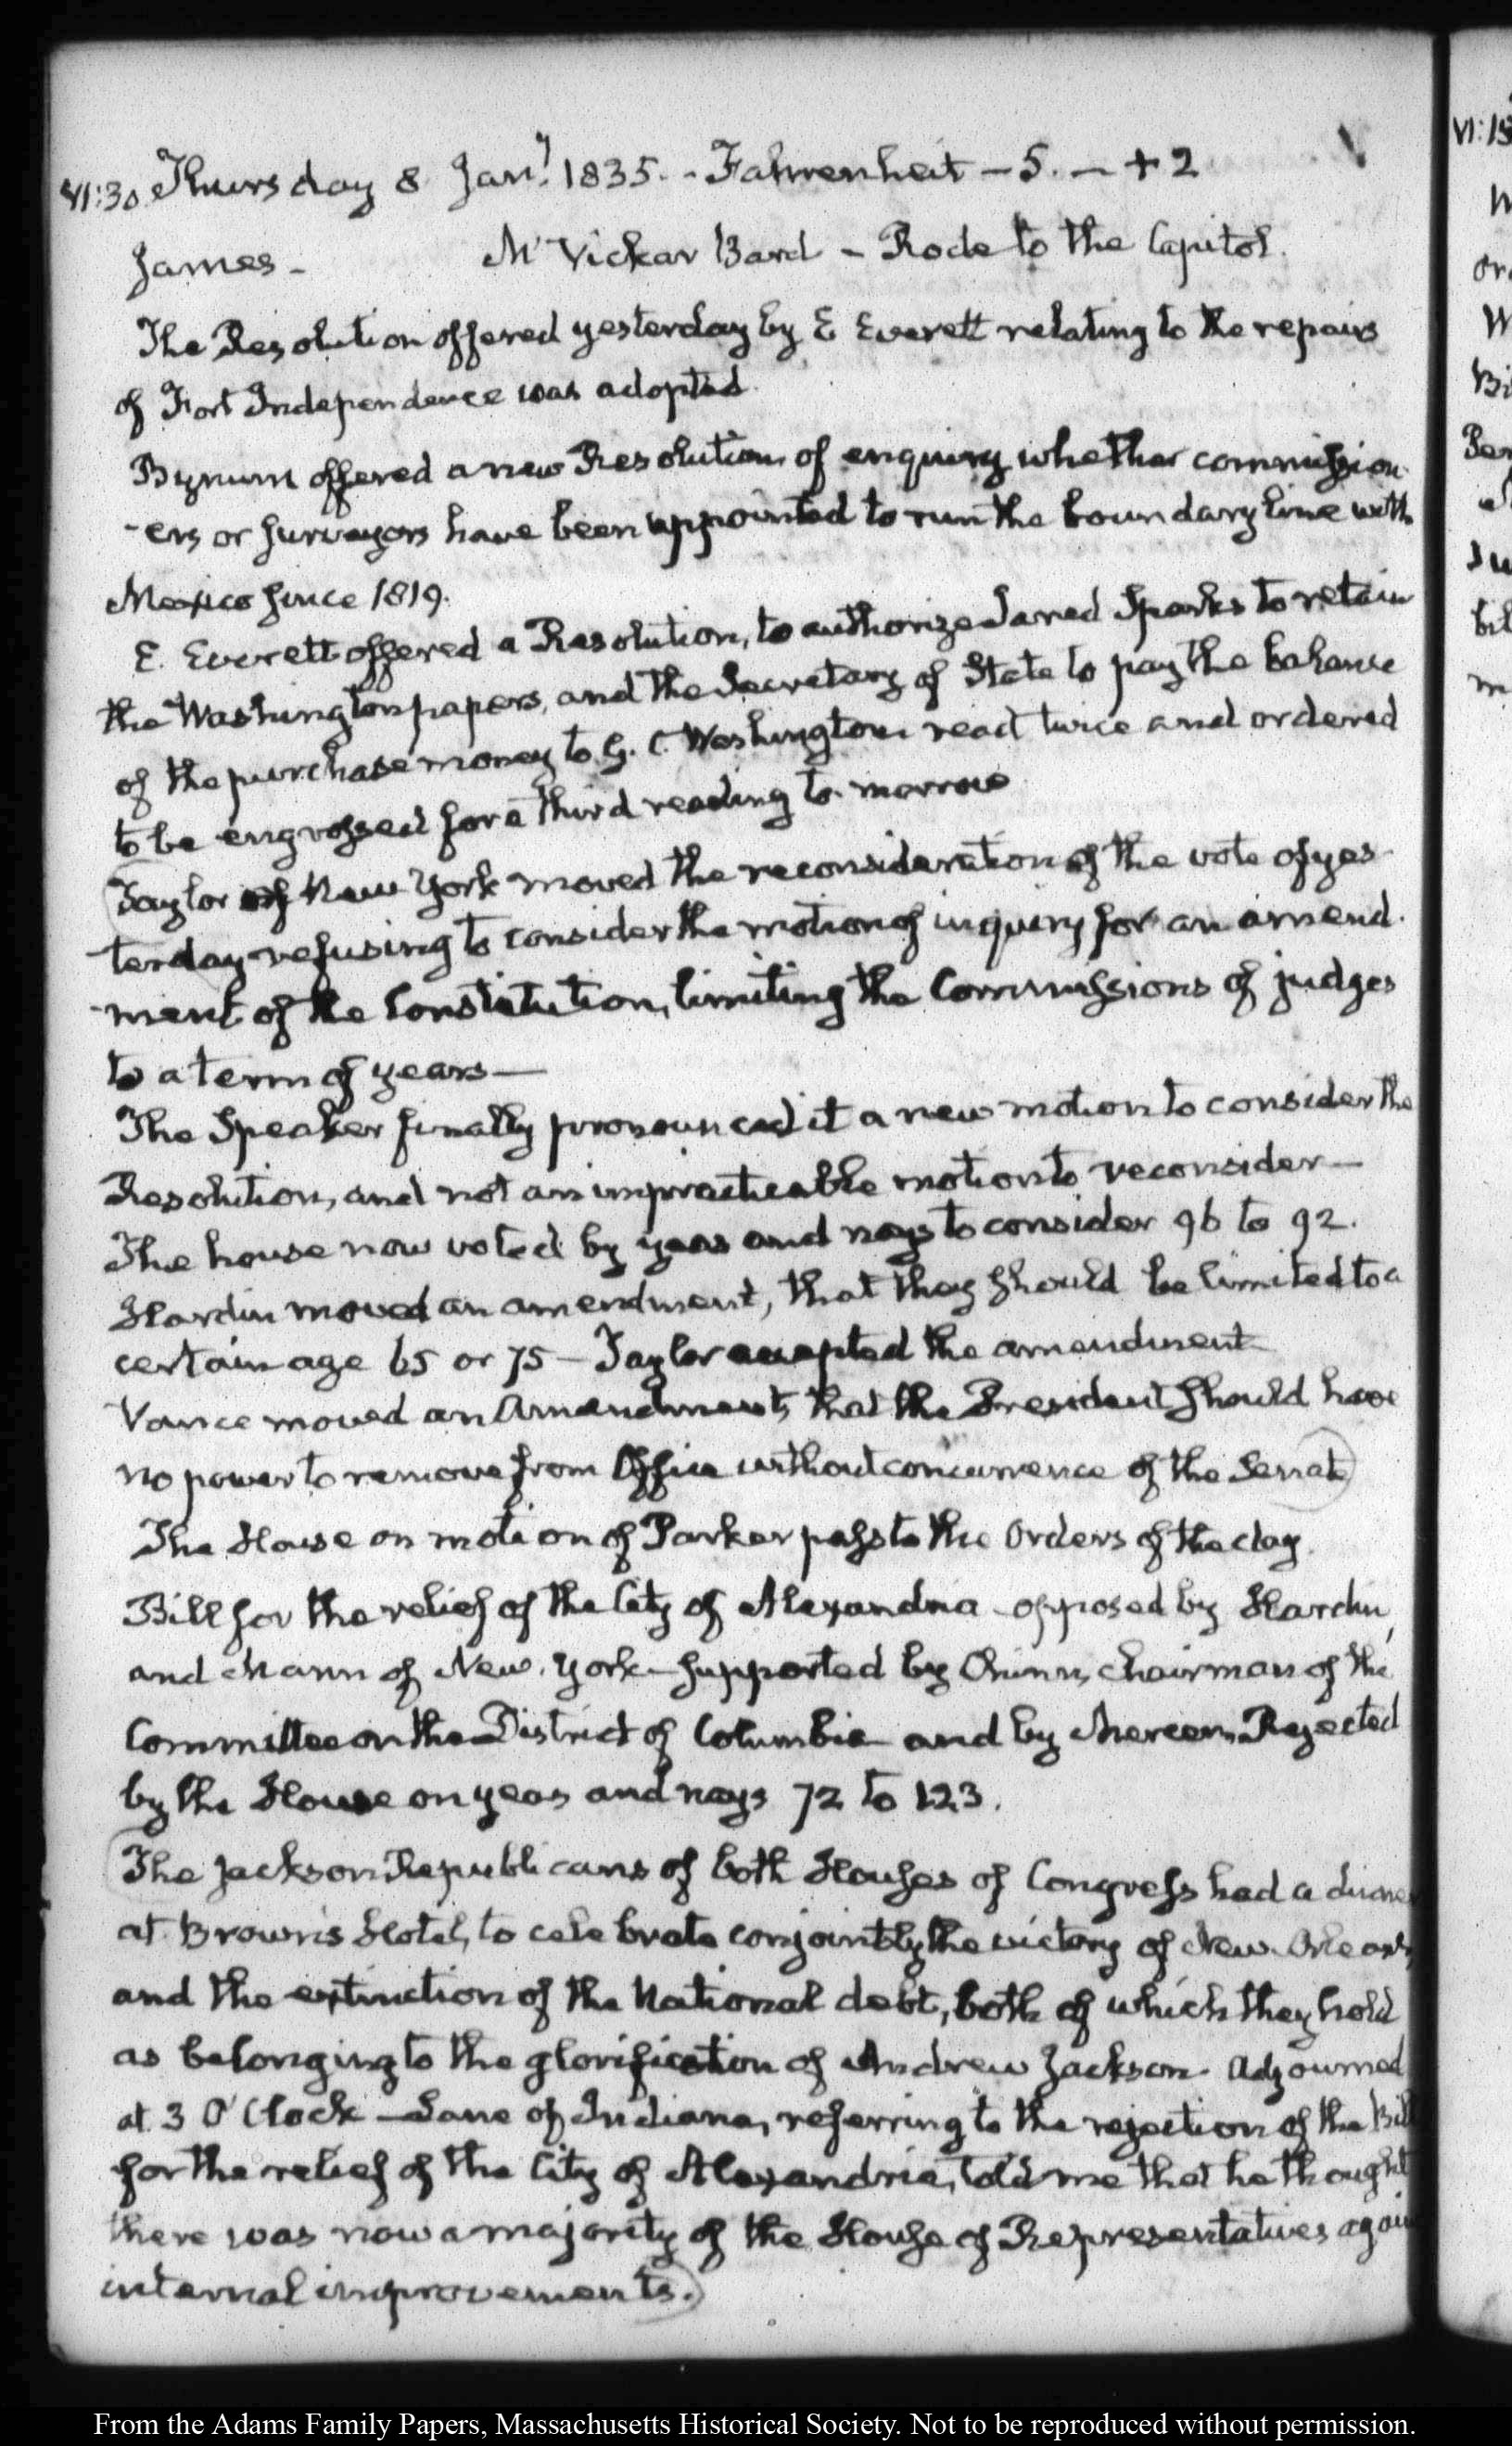 VI:30. Thursday 8 Jany. 1835. - Fahrenheit - 5. - + 2
James - McVickar Bard - Rode to the Capitol.
The Resolution offered yesterday by E Everett relating to the repairs
of Fort Independence was adopted.
Bynum offered a new Resolution of enquiry whether commission-
-ers or surveyors have been appointed to run the boundary line with
Mexico since 1819.
E. Everett offered a Resolution, to authorize Jared Sparks to retain
the Washington papers, and the Secretary of State to pay the balance
of the purchase money to G. C. Washington read twice and ordered
to be engrossed for a third reading to-morrow
Taylor of New York moved the reconsideration of the vote of yes-
terday refusing to consider the motion of inquiry for an amend-
-ment of the Constitution, limiting the Commissions of judges
to a term of years—
The Speaker finally pronounced it a new motion to consider the
Resolution, and not an impracticable motion to reconsider—
The house now voted by yeas and nays to consider 96 to 92.
Hardin moved an amendment, that they should be limited to a
certain age 65 or 75 - Taylor accepted the amendment
Vance moved an Amendment, that the President should have
no power to remove from Office without concurrence of the Senate
The House on motion of Parker pass to the Orders of the day.
Bill for the relief of the City of Alexandria opposed by Hardin,
and Mann of New-York - supported by Chinn, Chairman of the
Committee on the District of Columbia and by Mercer. Rejected
by the House on yeas and nays 72 to 123.
The Jackson Republicans of both Houses of Congress had a dinner
at Brown's Hotel, to celebrate conjointly the victory of New-Orleans,
and the extinction of the National debt, both of which they hold
as belonging to the glorification of Andrew Jackson. Adjourned
at 3 O'Clock - Lane of Indiana, referring to the rejection of the Bill
for the relief of the City of Alexandria, told me that he thought
there was now a majority of the House of Representatives again
internal improvements.
VI:15
From the Adams Family Papers, Massachusetts Historical Society. Not to be reproduced without permission.